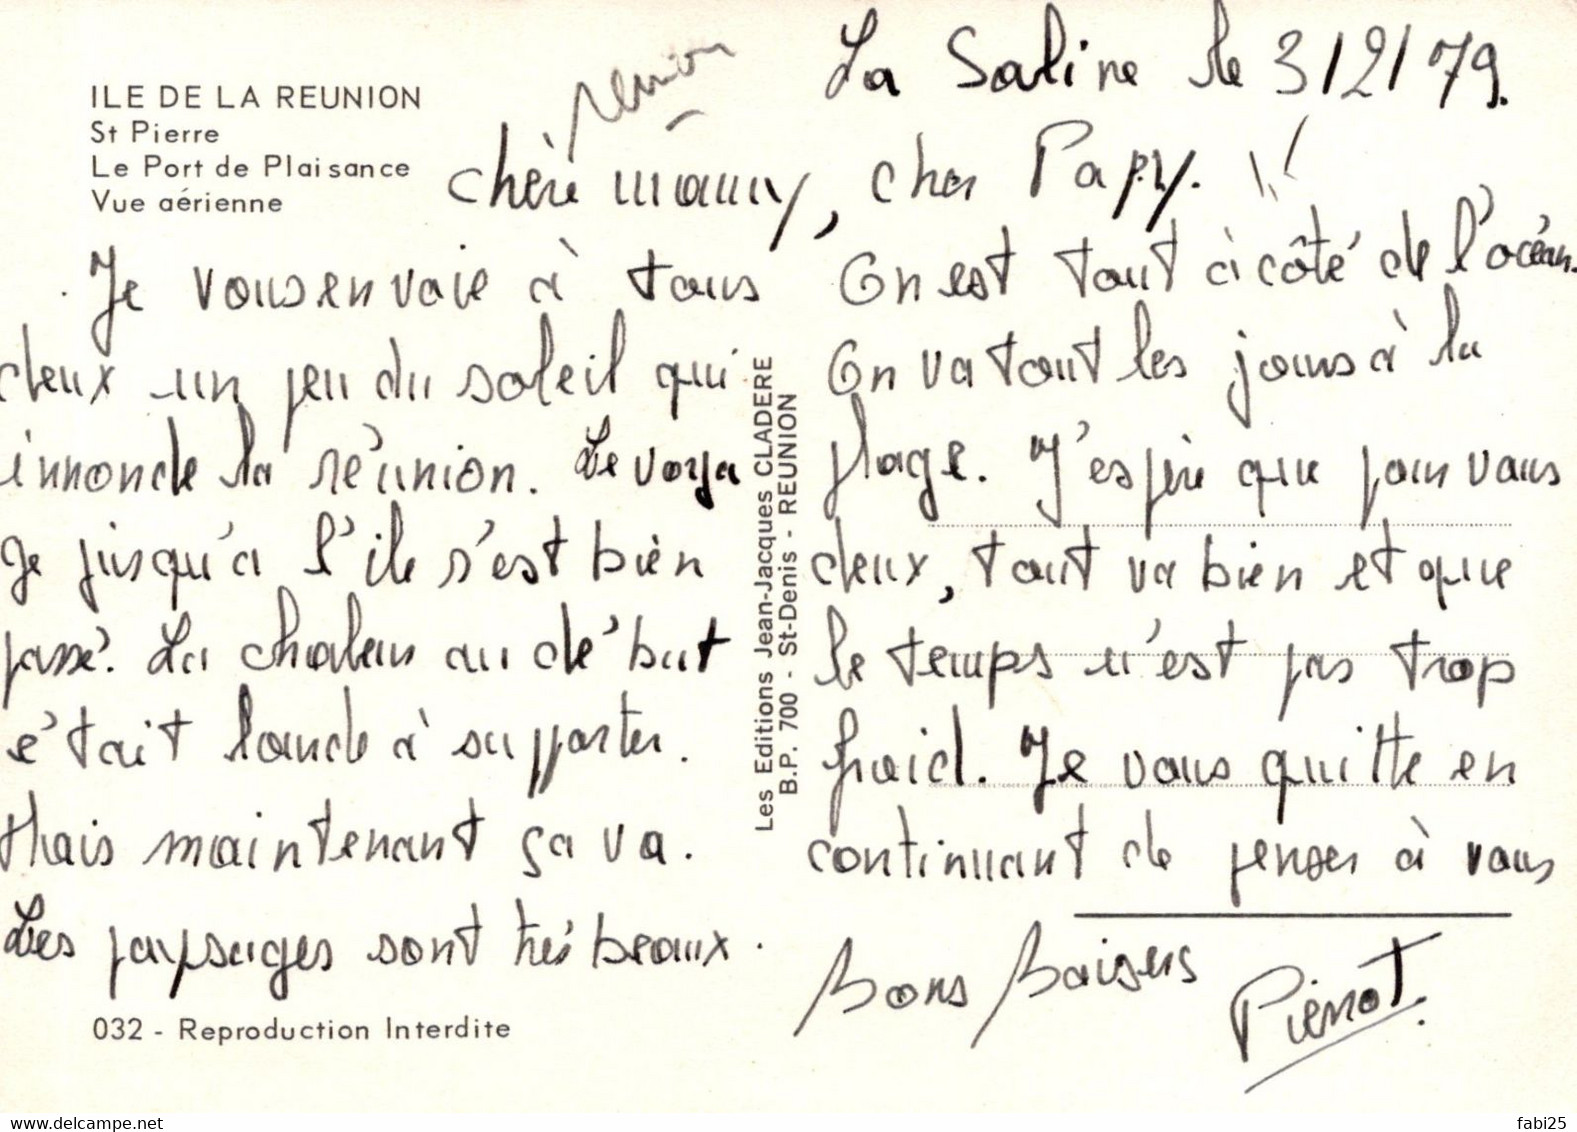 ILE DE LA REUNION
St Pierre
Le Port de Plaisance
Vue aérienne
reunion
La Saline le 3/2/79.
chère mamy, cher Papy.
Je vous envoie à tous
deux un peu du soleil qui
innonde la réunion. Le voya
ge jusqu'à l'ile s'est bien
passé. La chaleur au début
était lourde à supporter.
Mais maintenant ça va.
Les paysages sont très beaux.
On est tout à côté de l'océan.
On va tout les jours à la
plage. J'espère que pour vous
deux, tout va bien et que
le temps n'est pas trop
froid. Je vous quitte en
continuant de penser à vous
Bons Baisers
Pierrot.
Les Editions Jean-Jacques CLADERE
B.P. 700 - St-Denis - REUNION
032 - Reproduction Interdite
www.delcampe.net
fabi25